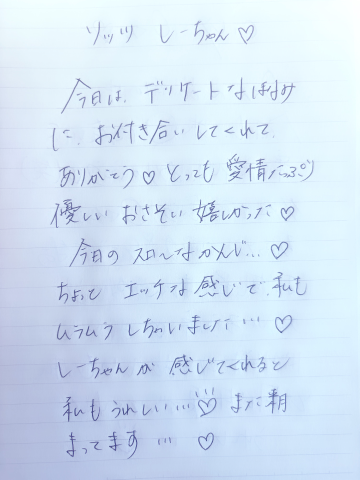 しーちゃん♡
今日は、デリケートなはなみ
に、お付き合いしてくれて、
ありがとう♡とっても愛情たっぷり
優しいおさそい嬉しかった♡
今日のスローなかんじ…♡
ちょっとエッチな感じで、私も
ムラムラしちゃいました…♡
しーちゃんが感じてくれると
私もうれしい…♡また
まってます…♡